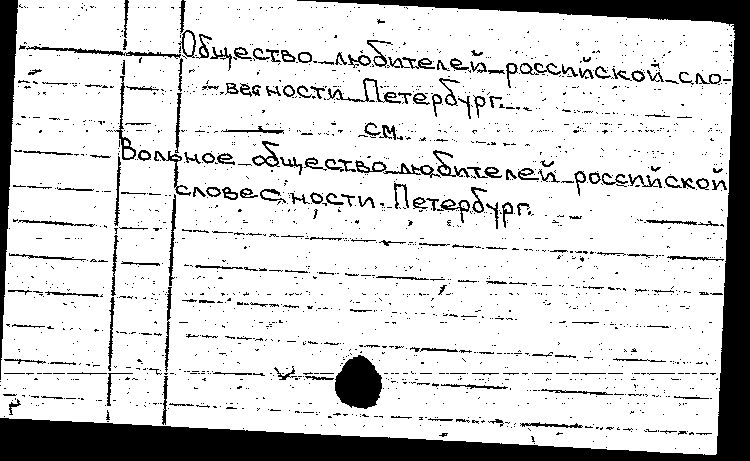 Общество любителей российской сло-
весности Петербург.
см.
Вольное общество любителей российской
словесности. Петербург.